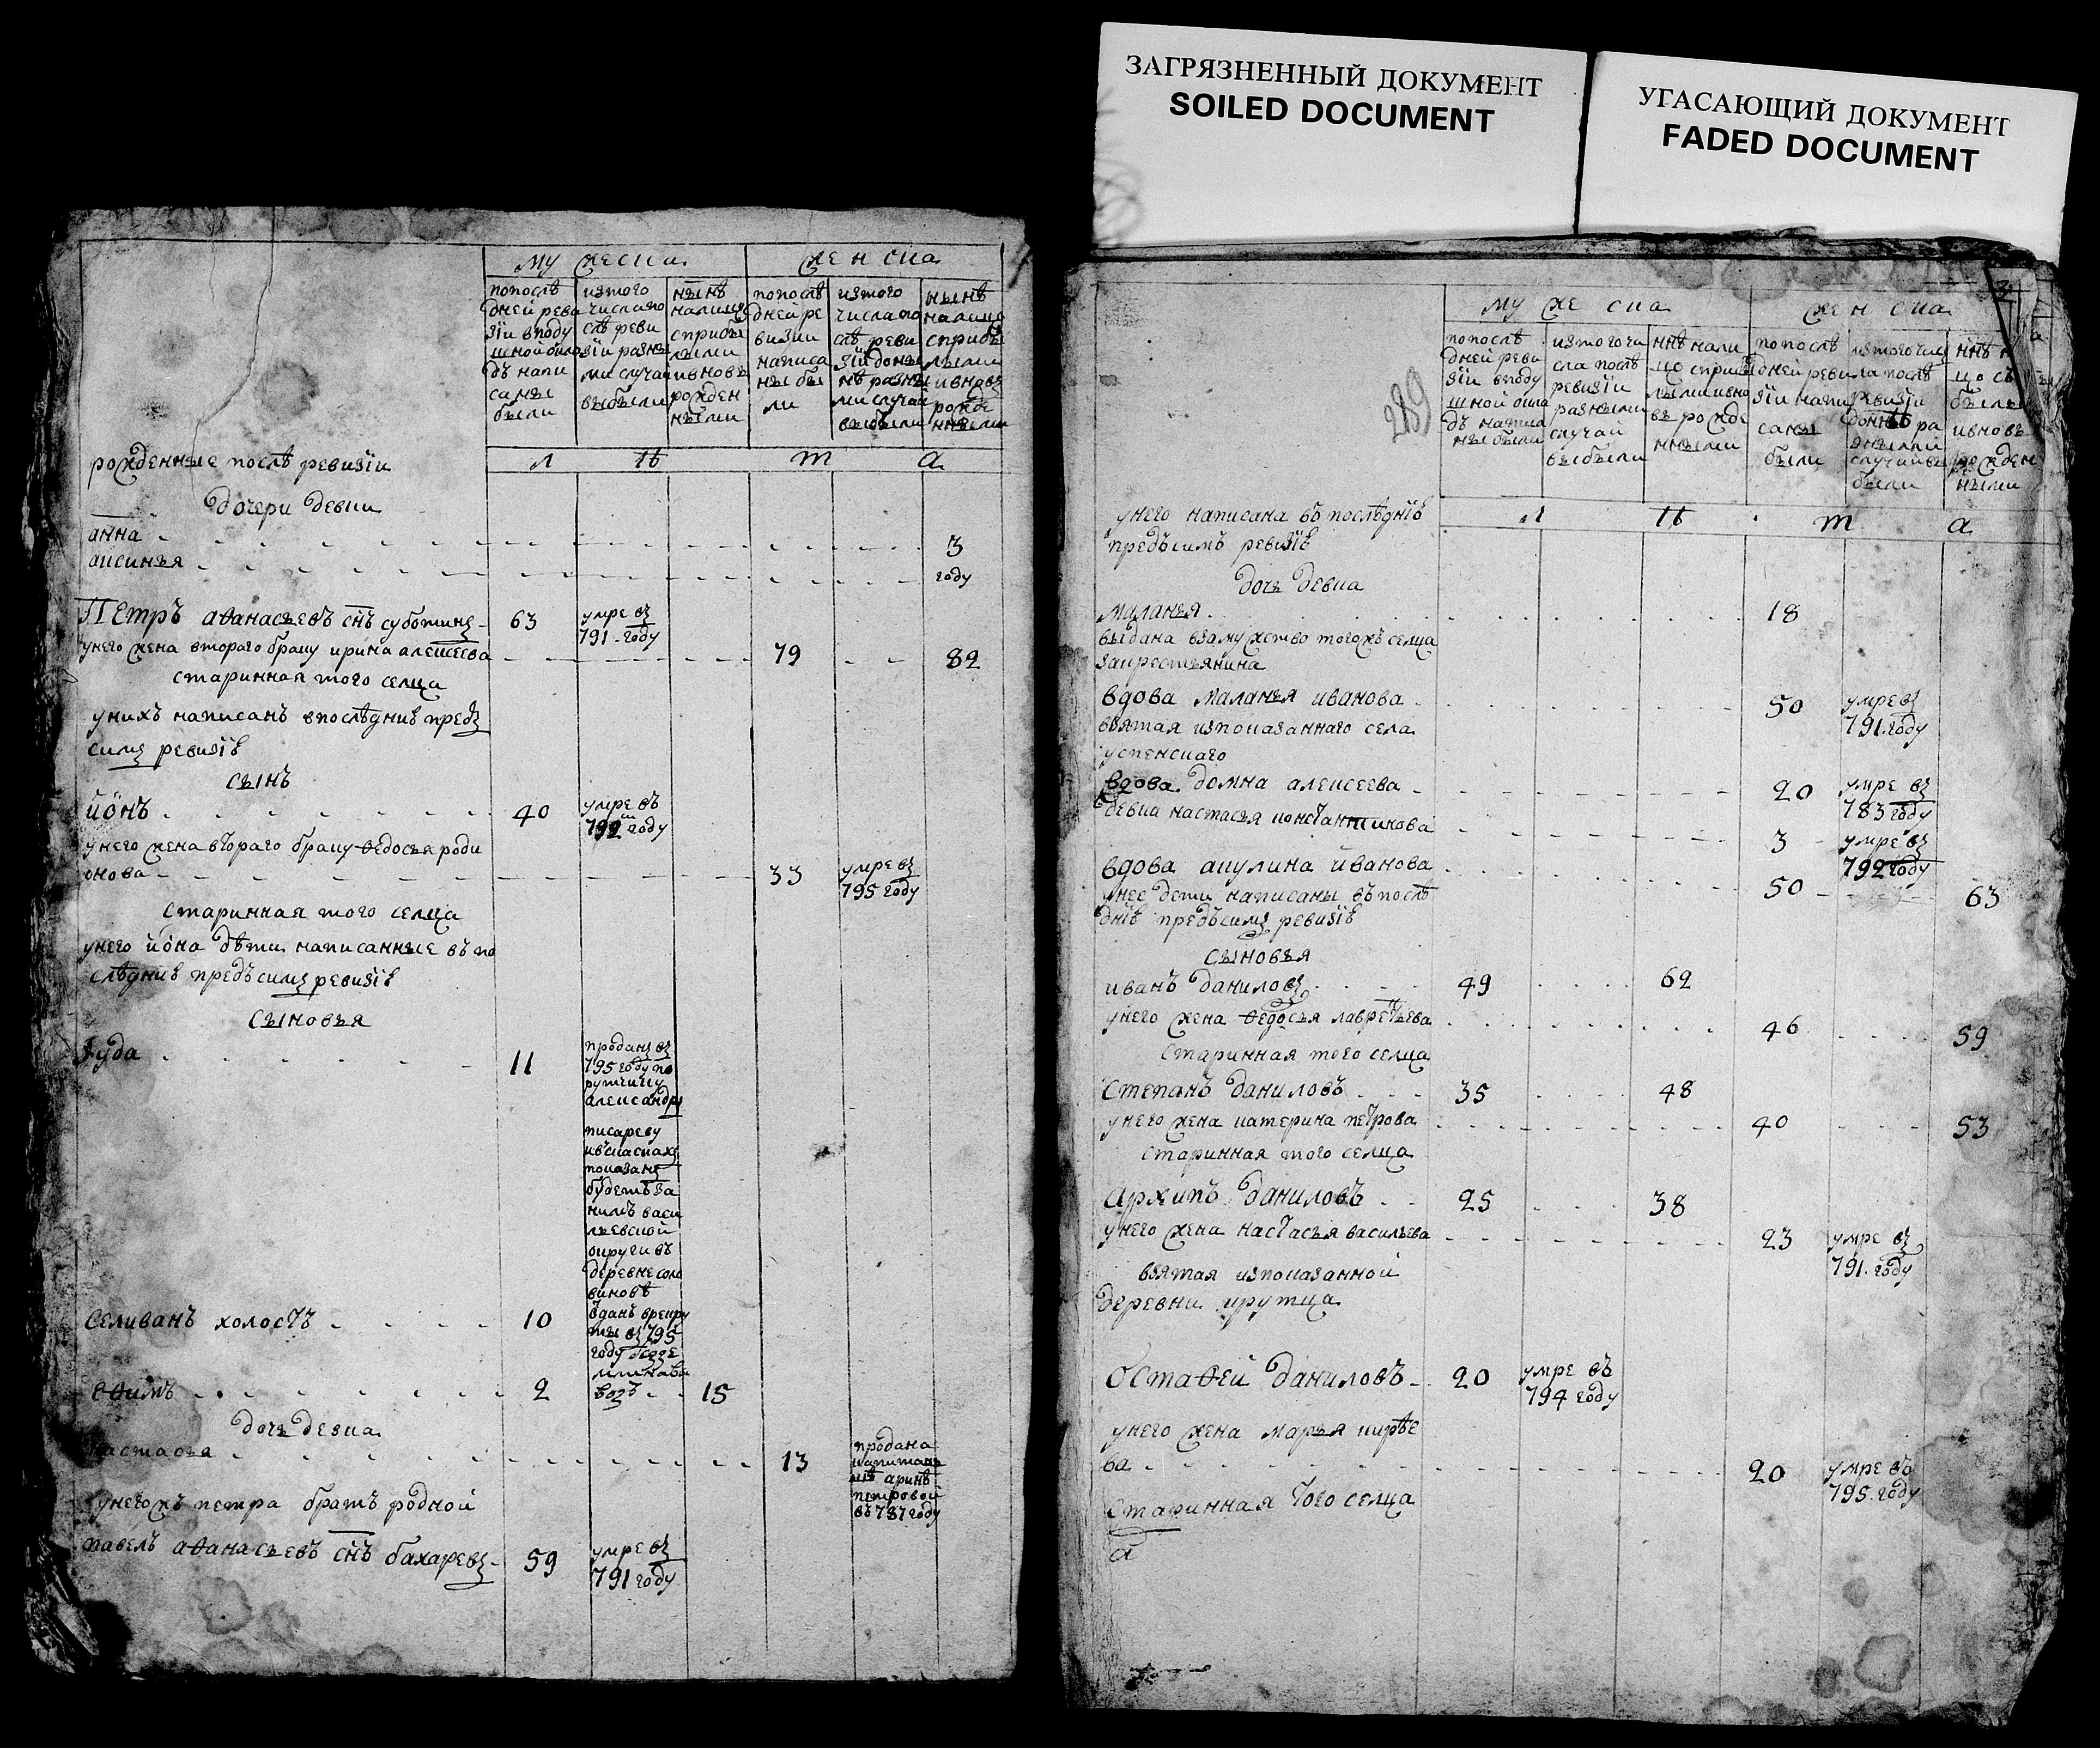 ЗАГРЯЗНЕННЫЙ ДОКУМЕНТ
SOILED DOCUMENT
УГАСАЮЩИЙ ДОКУМЕНТ
FADED DOCUMENT
мужеска
женска
попослѣ
дней реви
зіи вподу
шной окла
дъ напи
саны
были
изтого
числапо
слѣ реви
зіи разны
ми случаи
выбыли
нынѣ
налицо
сприбы
лыми
ивновь
рожден
ными
попослѣ
дней ре
визии
написа
ны бы
ли
изтого
числапо
слѣ реви
зіи доны
нѣ разны
ми случаи
выбыли
нынѣ
налицо
сприбы
лыми
ивновь
рожде
нными
л ѣ т а
рожденные послѣ ревизіи
дочери девки
анна 3
аксинья году
Петръ аѳанасьевъ снъ суботинъ 63 умре въ
791 году
унего жена втораго браку ирина алексеева 79 82
старинная того селца
унихъ написанъ впослѣдниѣ предъ
симъ ревизіѣ
сынъ
йонъ 40 умре въ
792 году
унего жена втораго браку ѳедосья роди
онова 33 умре въ
795 году
старинная того селца
унего йона дѣти написанные въ по
слѣдниѣ предъ симъ ревизіѣ
сыновья
Іуда 11 проданъ въ
795 году по
рутчику
александру
писареву
ивсказкахъ
показанъ
будетъ за
нимъ васи
льевской
округи въ
деревне соло
виновѣ
селиванъ холостъ 10 Ѿданъ врекру
ты въ 795
году
еѳимъ 2 15
дочь девка
настасья 13 продана
капитан
шѣ аринѣ
петровой
въ 787 году
унегожъ петра братъ родной
павелъ аѳанасьевъ снъ бахаревъ 59 умре въ
791 году
3
289
муже ска
жен ска
попослѣ
дней реви
зіи вподу
шной окла
дъ написа
ны были
изтогочи
сла послѣ
ревизіи
разными
случаи
выбыли
ннѣ нали
цо спри
лыми ивно
вь рожде
нными
попослѣ
дней реви
зіи напи
саны
были
изтого чис
ла послѣ
ревизіи
донынѣ ра
зными
случаи вы
были
ннѣ
цо съ
былы
ивновь
рожден
ными
л ѣ т а
унего написана въ послѣдниѣ
предъ симъ ревизіѣ
дочь девка
маланья 18
выдана взамужство тогожъ селца
закрестьянина
вдова маланья иванова 50 умре въ
791 году
взятая изпоказаннаго села
успенскаго
вдова домна алексеева 20 умре въ
783 году
девка настасья константинова 3 умре въ
792 году
вдова акулина иванова 50 63
унее дети написаны въ послѣ
дниѣ предъ симъ ревизіѣ
сыновья
иванъ даниловъ 49 62
унего жена ѳедосья лаврентьева 46 59
старинная того селца
степанъ даниловъ 35 48
унего жена катерина петрова 40 53
старинная того селца
архипъ даниловъ 25 38
унего жена настасья васильева 23 умре въ
791 году
взятая изпоказанной
деревни крутца
остаѳей даниловъ 20 умре въ
794 году
унего жена марья кирѣе
ва 20 умре въ
795 году
старинная того селца